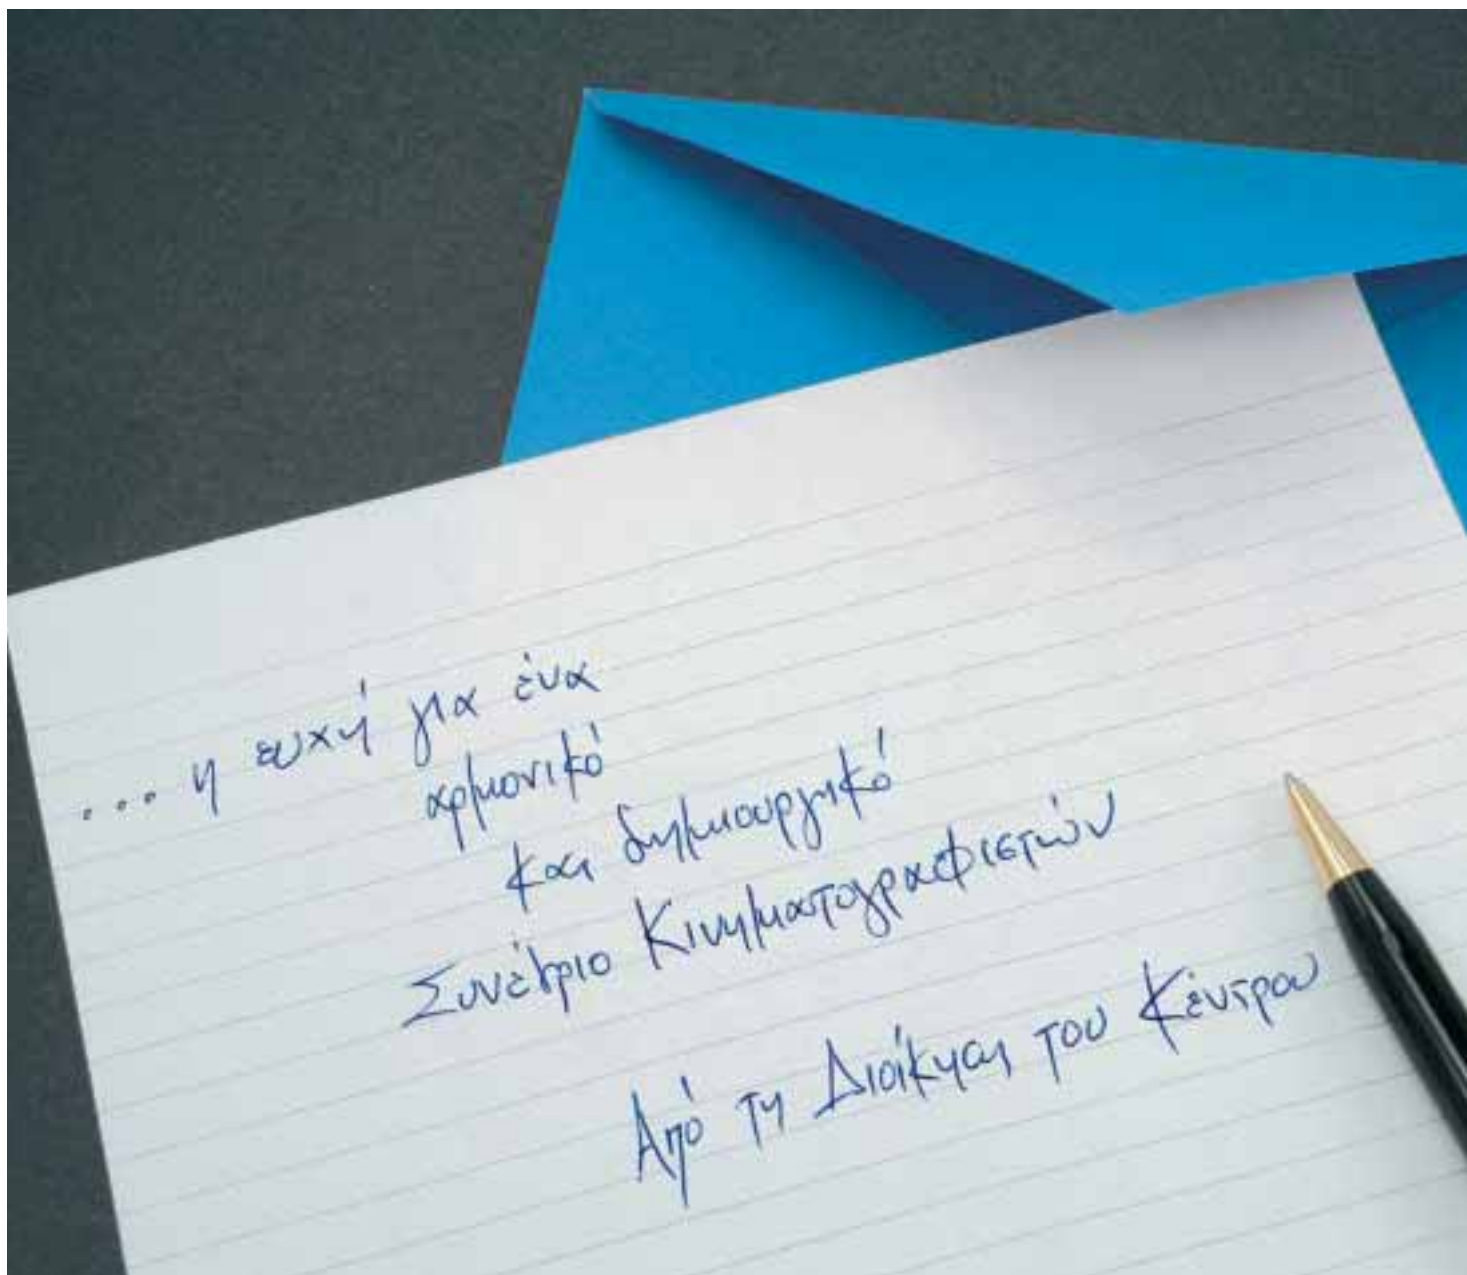 ... η ευχή για ένα
αρμονικό
και δημιουργικό
Συνέδριο Κινηματογραφιστών
Από τη Διοίκηση του Κέντρου